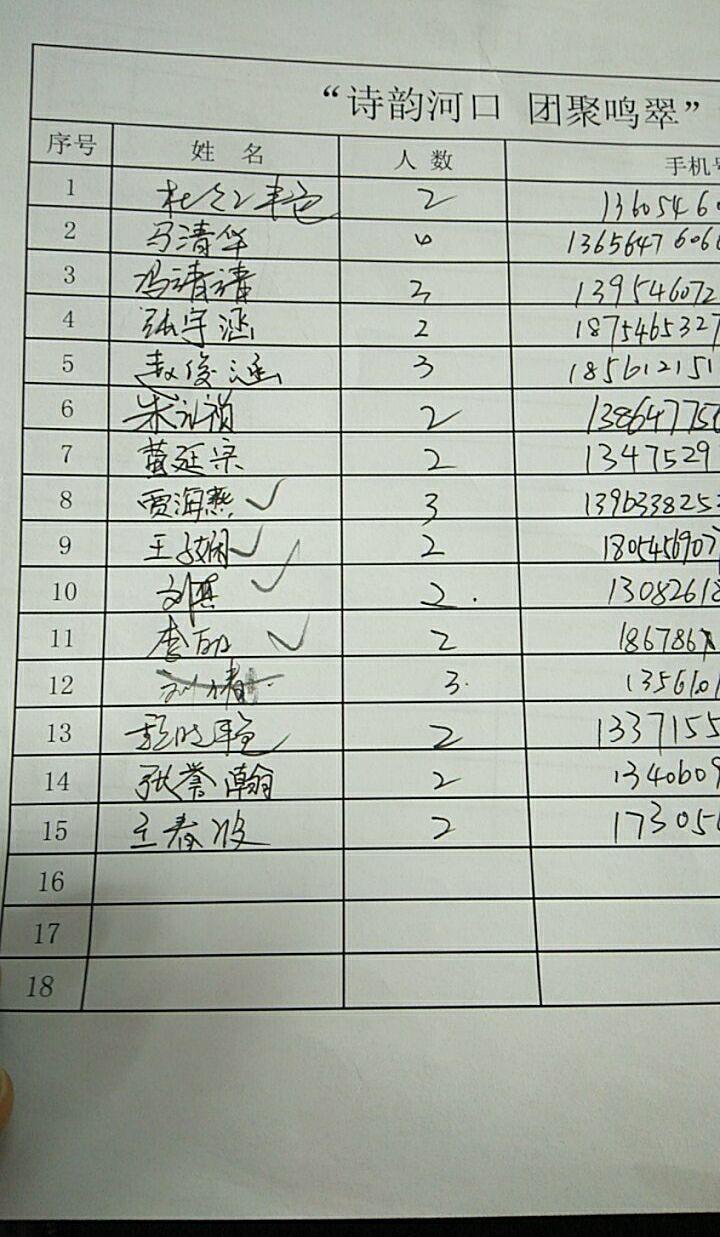 “诗韵河口 团聚鸣翠”
序号 姓 名 人 数 手机号
1 2 1360546
2 马清华 136564760
3 冯清清 2 139546072
4 张宇涵 2 1875465327
5 赵俊涵 3 185612151
6 朱礼祯 2 13864775
7 黄延宗 2 1347529
8 贾海燕 3 139633825
9 王 2 1805456907
10 刘 2 1308261
11 李 2 18678
12 刘 3 1356
13 2 1337155
14 张誉瀚 2 134060
15 王春波 2 17305
16
17
18